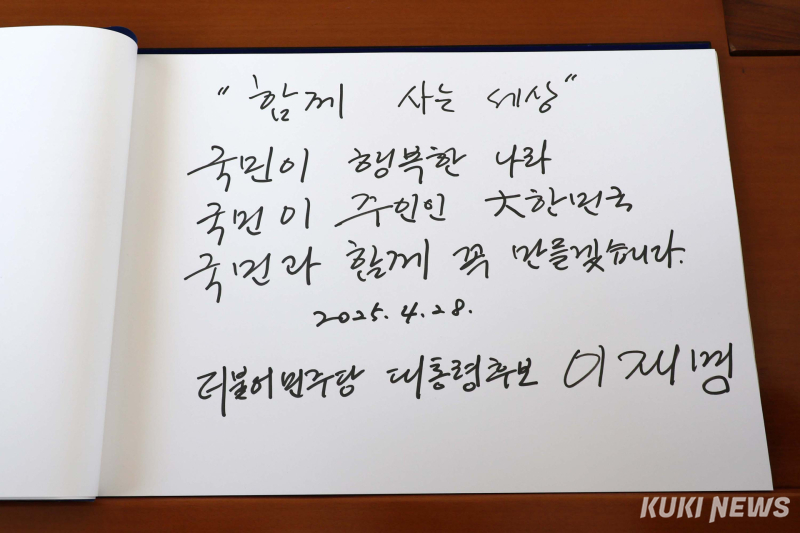 "함께 사는 세상"
국민이 행복한 나라
국민이 주인인 大한민국
국민과 함께 꼭 만들겠습니다.
2025. 4. 28.
더불어민주당 대통령후보 이재명
KUKI NEWS